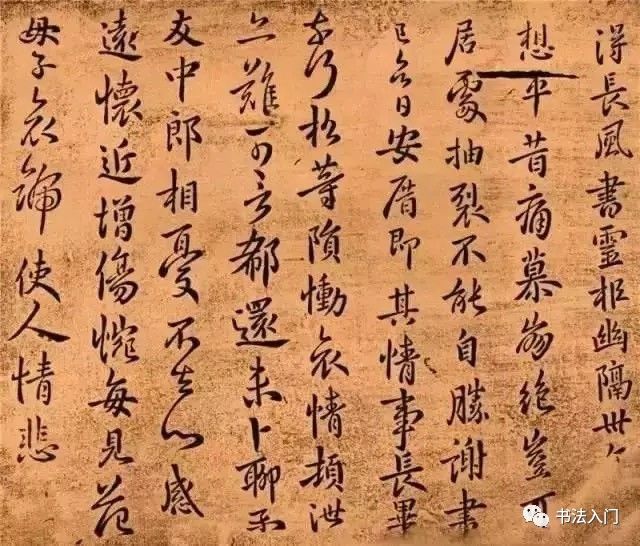 得長風書靈柩幽隔卅
想平昔痛慕崩絕豈可
居處抽裂不能自勝謝書
已日安厝即其情事長畢
奈何松等隕慟哀情頓泄
難可言郗還未卜聊示
友中郎相憂不去心感
遠懷近增傷惋每見范
母子哀號使人情悲
书法入门